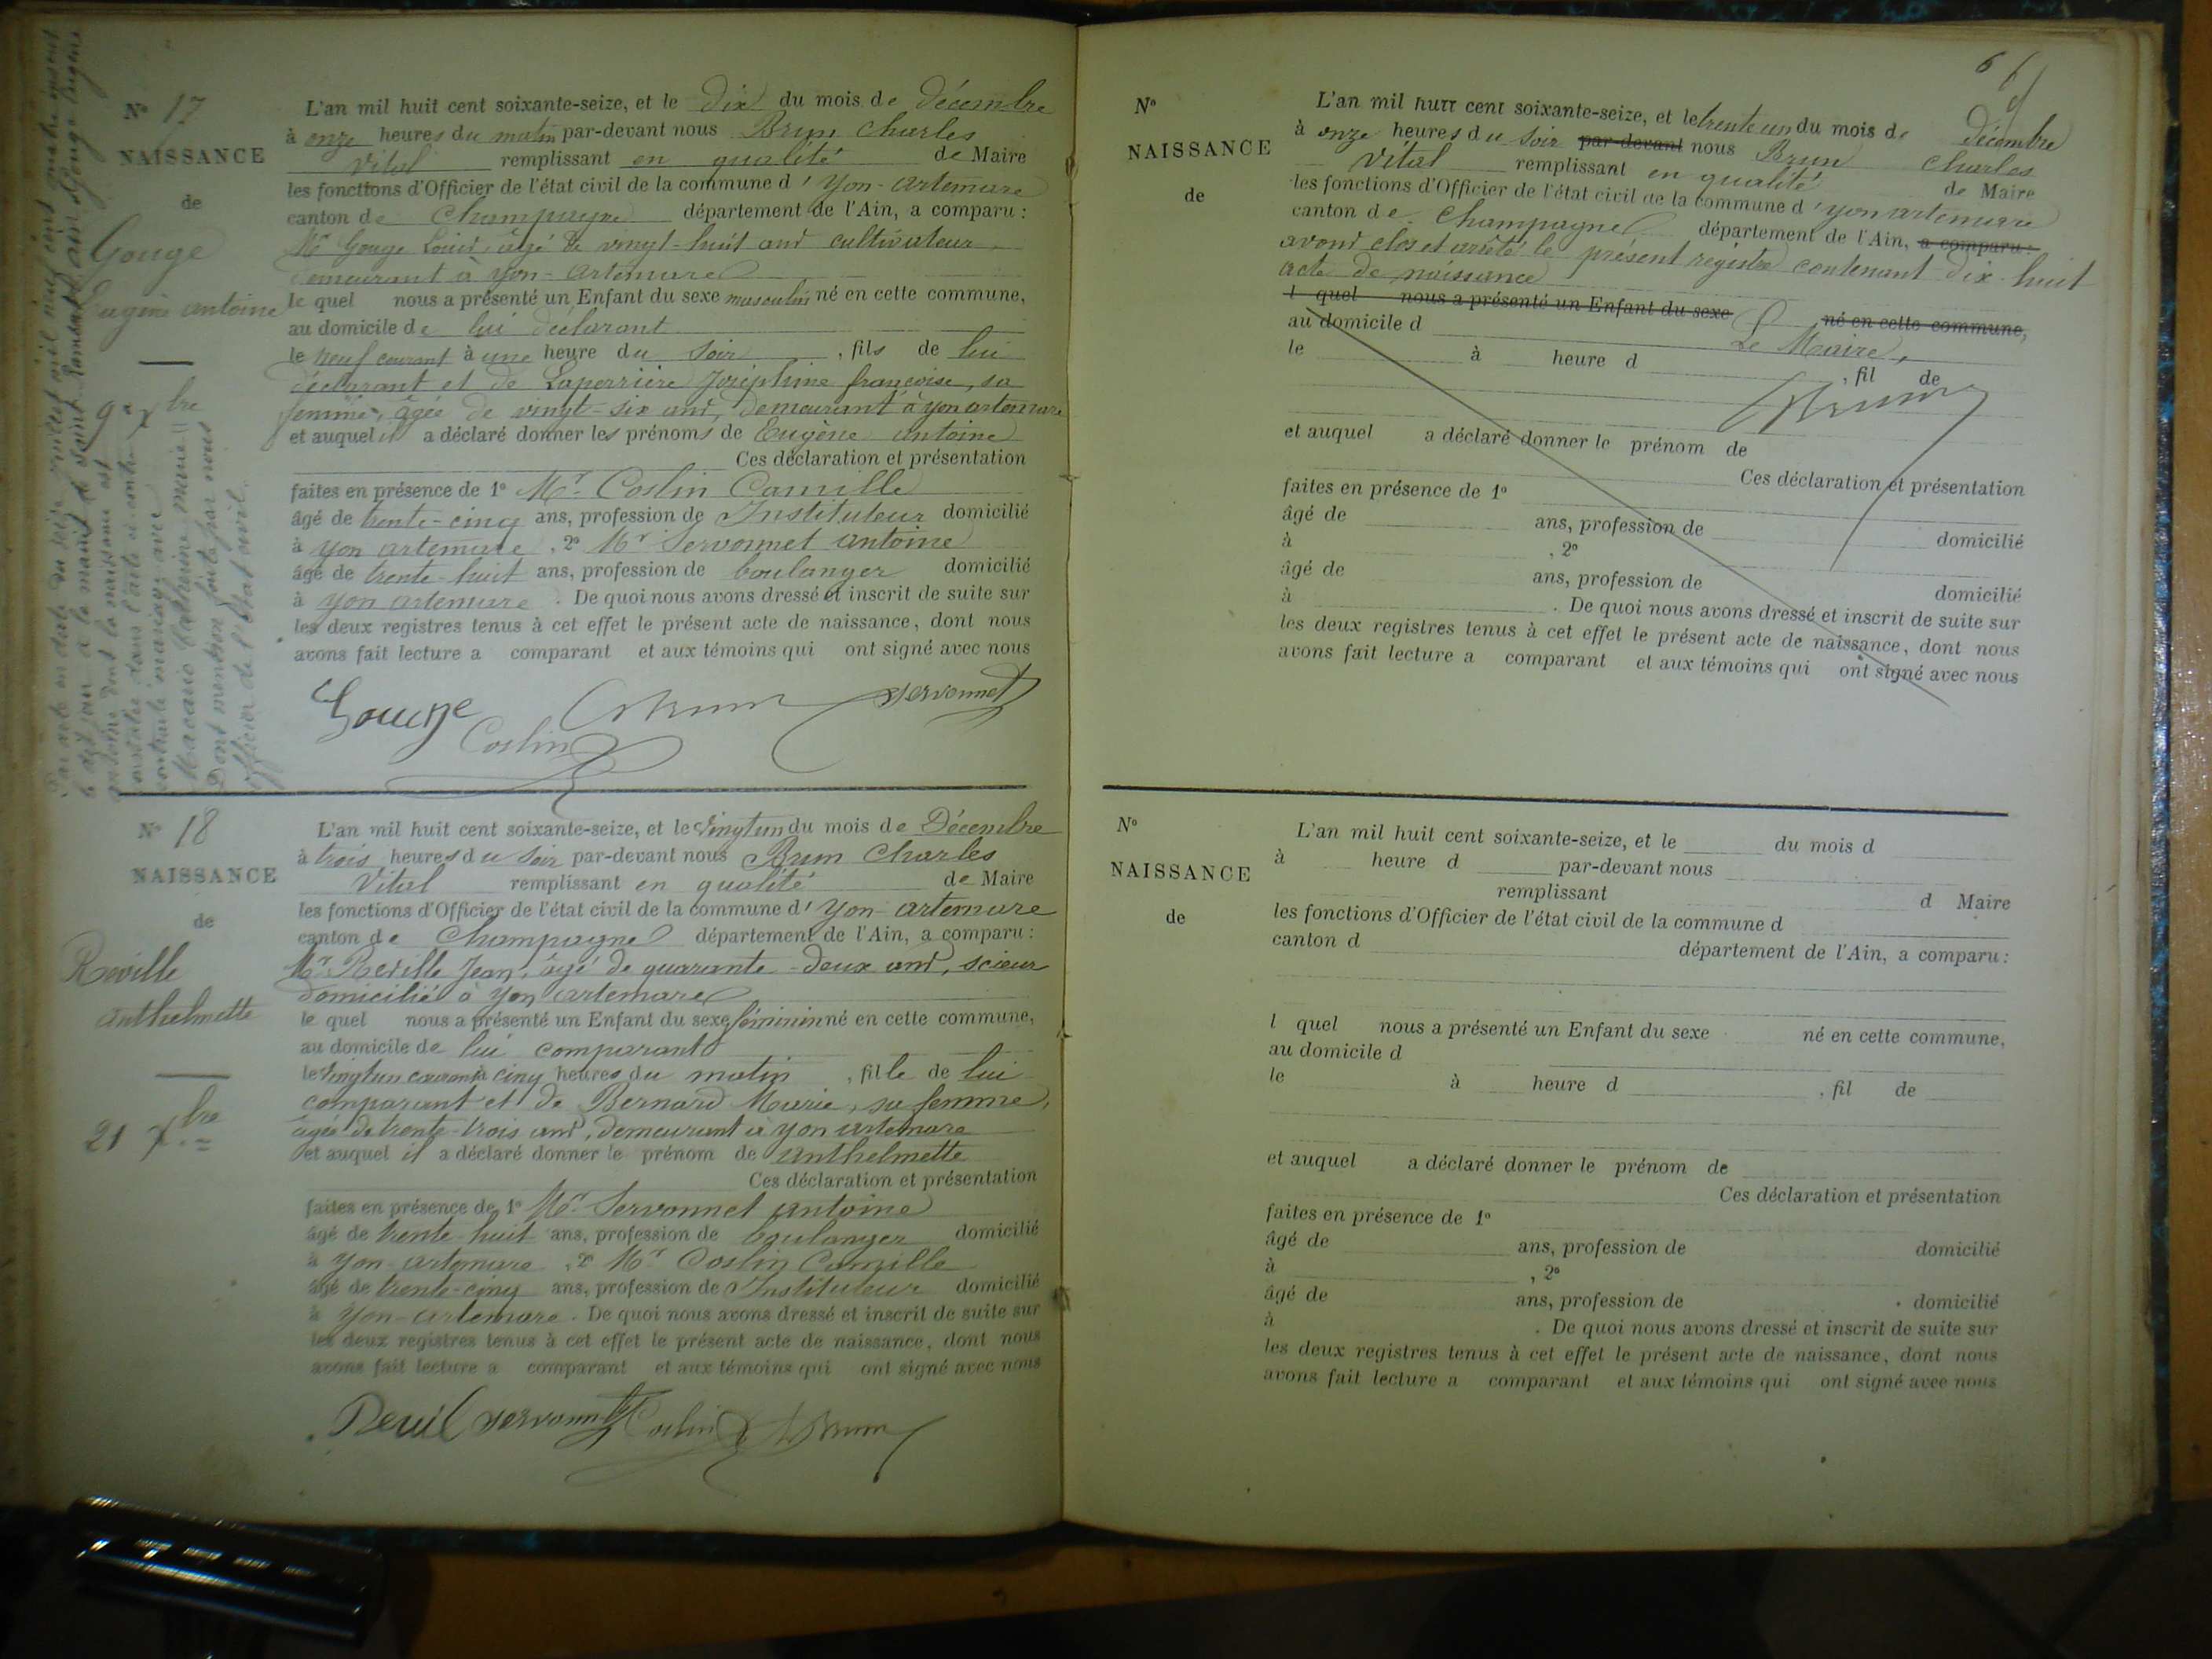 N° 17
NAISSANCE
de
Gouge
Eugène antoine
9 Xbre
L'an mil huit cent soixante-seize, et le dix du mois de décembre
à onze heures du matin par-devant nous Brun Charles
Vital remplissant en qualité de Maire
les fonctions d'Officier de l'état civil de la commune d'yon-artemare
canton de Champagne département de l'Ain, a comparu :
Mr Gouge Louis, âgé de vingt-huit ans cultivateur,
demeurant à yon-artemare
le quel nous a présenté un Enfant du sexe masculin né en cette commune,
au domicile de lui déclarant
le neuf courant à une heure du soir, fils de lui
déclarant et de Laperrière Joséphine françoise, sa
femme, âgée de vingt-six ans, demeurant à yon artemare
et auquel il a déclaré donner les prénoms de Eugène antoine
Ces déclaration et présentation
faites en présence de 1° Mr Coslin Camille
âgé de trente-cinq ans, profession de Instituteur domicilié
à yon artemare, 2° Mr Servonnet antoine
âgé de trente-huit ans, profession de boulanger domicilié
à yon artemare. De quoi nous avons dressé et inscrit de suite sur
les deux registres tenus à cet effet le présent acte de naissance, dont nous
avons fait lecture a comparant et aux témoins qui ont signé avec nous
Gouge Brun Servonnet
Coslin
officier de l'état civil.
N° 18
NAISSANCE
de
Reville
anthelmette
21 Xbre
L'an mil huit cent soixante-seize, et le vingt un du mois de Décembre
à trois heures du soir par-devant nous Brun Charles
Vital remplissant en qualité de Maire
les fonctions d'Officier de l'état civil de la commune d'yon-artemare
canton de Champagne département de l'Ain, a comparu :
Mr Reville Jean, âgé de quarante-deux ans, scieur
domicilié à yon artemare
le quel nous a présenté un Enfant du sexe féminin né en cette commune,
au domicile de lui comparant
le vingt un courant à cinq heures du matin, fille de lui
comparant et de Bernard Marie, sa femme,
âgée de trente-trois ans, demeurant à yon artemare
et auquel il a déclaré donner le prénom de anthelmette
Ces déclaration et présentation
faites en présence de 1° Mr Servonnet antoine
âgé de trente-huit ans, profession de boulanger domicilié
à yon-artemare, 2° Mr Coslin Camille
âgé de trente-cinq ans, profession de Instituteur domicilié
à yon-artemare. De quoi nous avons dressé et inscrit de suite sur
les deux registres tenus à cet effet le présent acte de naissance, dont nous
avons fait lecture a comparant et aux témoins qui ont signé avec nous
Revil Servonnet Coslin Brun
6
N°
NAISSANCE
de
L'an mil huit cent soixante-seize, et le trente un du mois de décembre
à onze heures du soir par-devant nous Brun Charles
Vital remplissant en qualité de Maire
les fonctions d'Officier de l'état civil de la commune d'yon artemare
canton de Champagne département de l'Ain, a comparu :
avons clos et arrêté le présent registre contenant dix-huit
acte de naissance
l quel nous a présenté un Enfant du sexe né en cette commune,
au domicile d
Le Maire,
le à heure d , fil de
Brun
et auquel a déclaré donner le prénom de
Ces déclaration et présentation
faites en présence de 1°
âgé de ans, profession de domicilié
à , 2°
âgé de ans, profession de domicilié
à . De quoi nous avons dressé et inscrit de suite sur
les deux registres tenus à cet effet le présent acte de naissance, dont nous
avons fait lecture a comparant et aux témoins qui ont signé avec nous
N°
NAISSANCE
de
L'an mil huit cent soixante-seize, et le du mois d
à heure d par-devant nous
remplissant d Maire
les fonctions d'Officier de l'état civil de la commune d
canton d département de l'Ain, a comparu :
l quel nous a présenté un Enfant du sexe né en cette commune,
au domicile d
le à heure d , fil de
et auquel a déclaré donner le prénom de
Ces déclaration et présentation
faites en présence de 1°
âgé de ans, profession de domicilié
à , 2°
âgé de ans, profession de domicilié
à . De quoi nous avons dressé et inscrit de suite sur
les deux registres tenus à cet effet le présent acte de naissance, dont nous
avons fait lecture a comparant et aux témoins qui ont signé avec nous